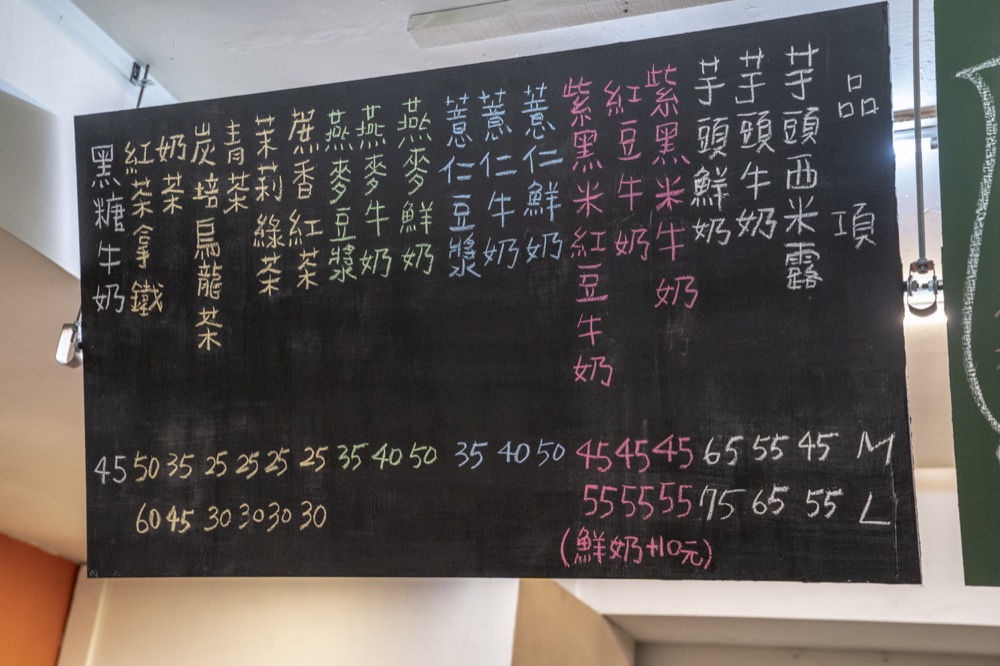 品項 M L
芋頭西米露 45 55
芋頭牛奶 55 65
芋頭鮮奶 65 75
紫黑米牛奶 45 55
紅豆牛奶 45 55
紫黑米紅豆牛奶 45 55
(鮮奶+10元)
薏仁鮮奶 50
薏仁牛奶 40
薏仁豆漿 35
燕麥鮮奶 50
燕麥牛奶 40
燕麥豆漿 35
蔗香紅茶 25 30
茉莉綠茶 25 30
青茶 25 30
炭培烏龍茶 25 30
奶茶 35 45
紅茶拿鐵 50 60
黑糖牛奶 45